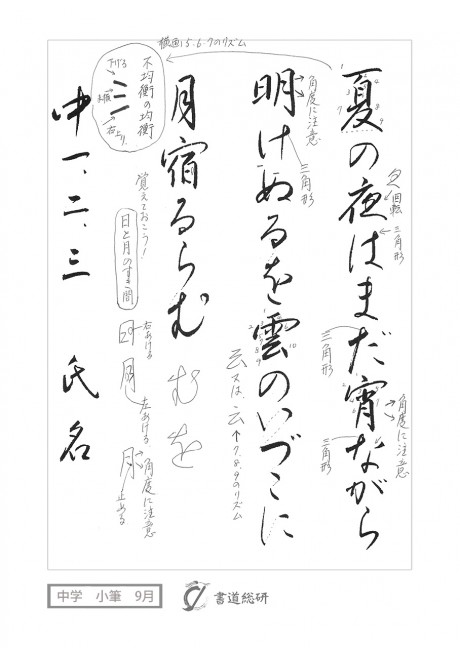 夏の夜はまだ宵ながら
明けぬるを雲のいづこに
月宿るらむ
むを
中一、二、三 氏名
横画5.6.7のリズム
不均衡の均衡
下げる
右上り
角度に注意
三角形
回転
三角形
三角形
角度に注意
三角形
云又は、云↑7.8.9のリズム
覚えておこう!
日と月のすき間
日 右あける
月 左あける
月 角度に注意
止める
中学 小筆 9月
書道総研